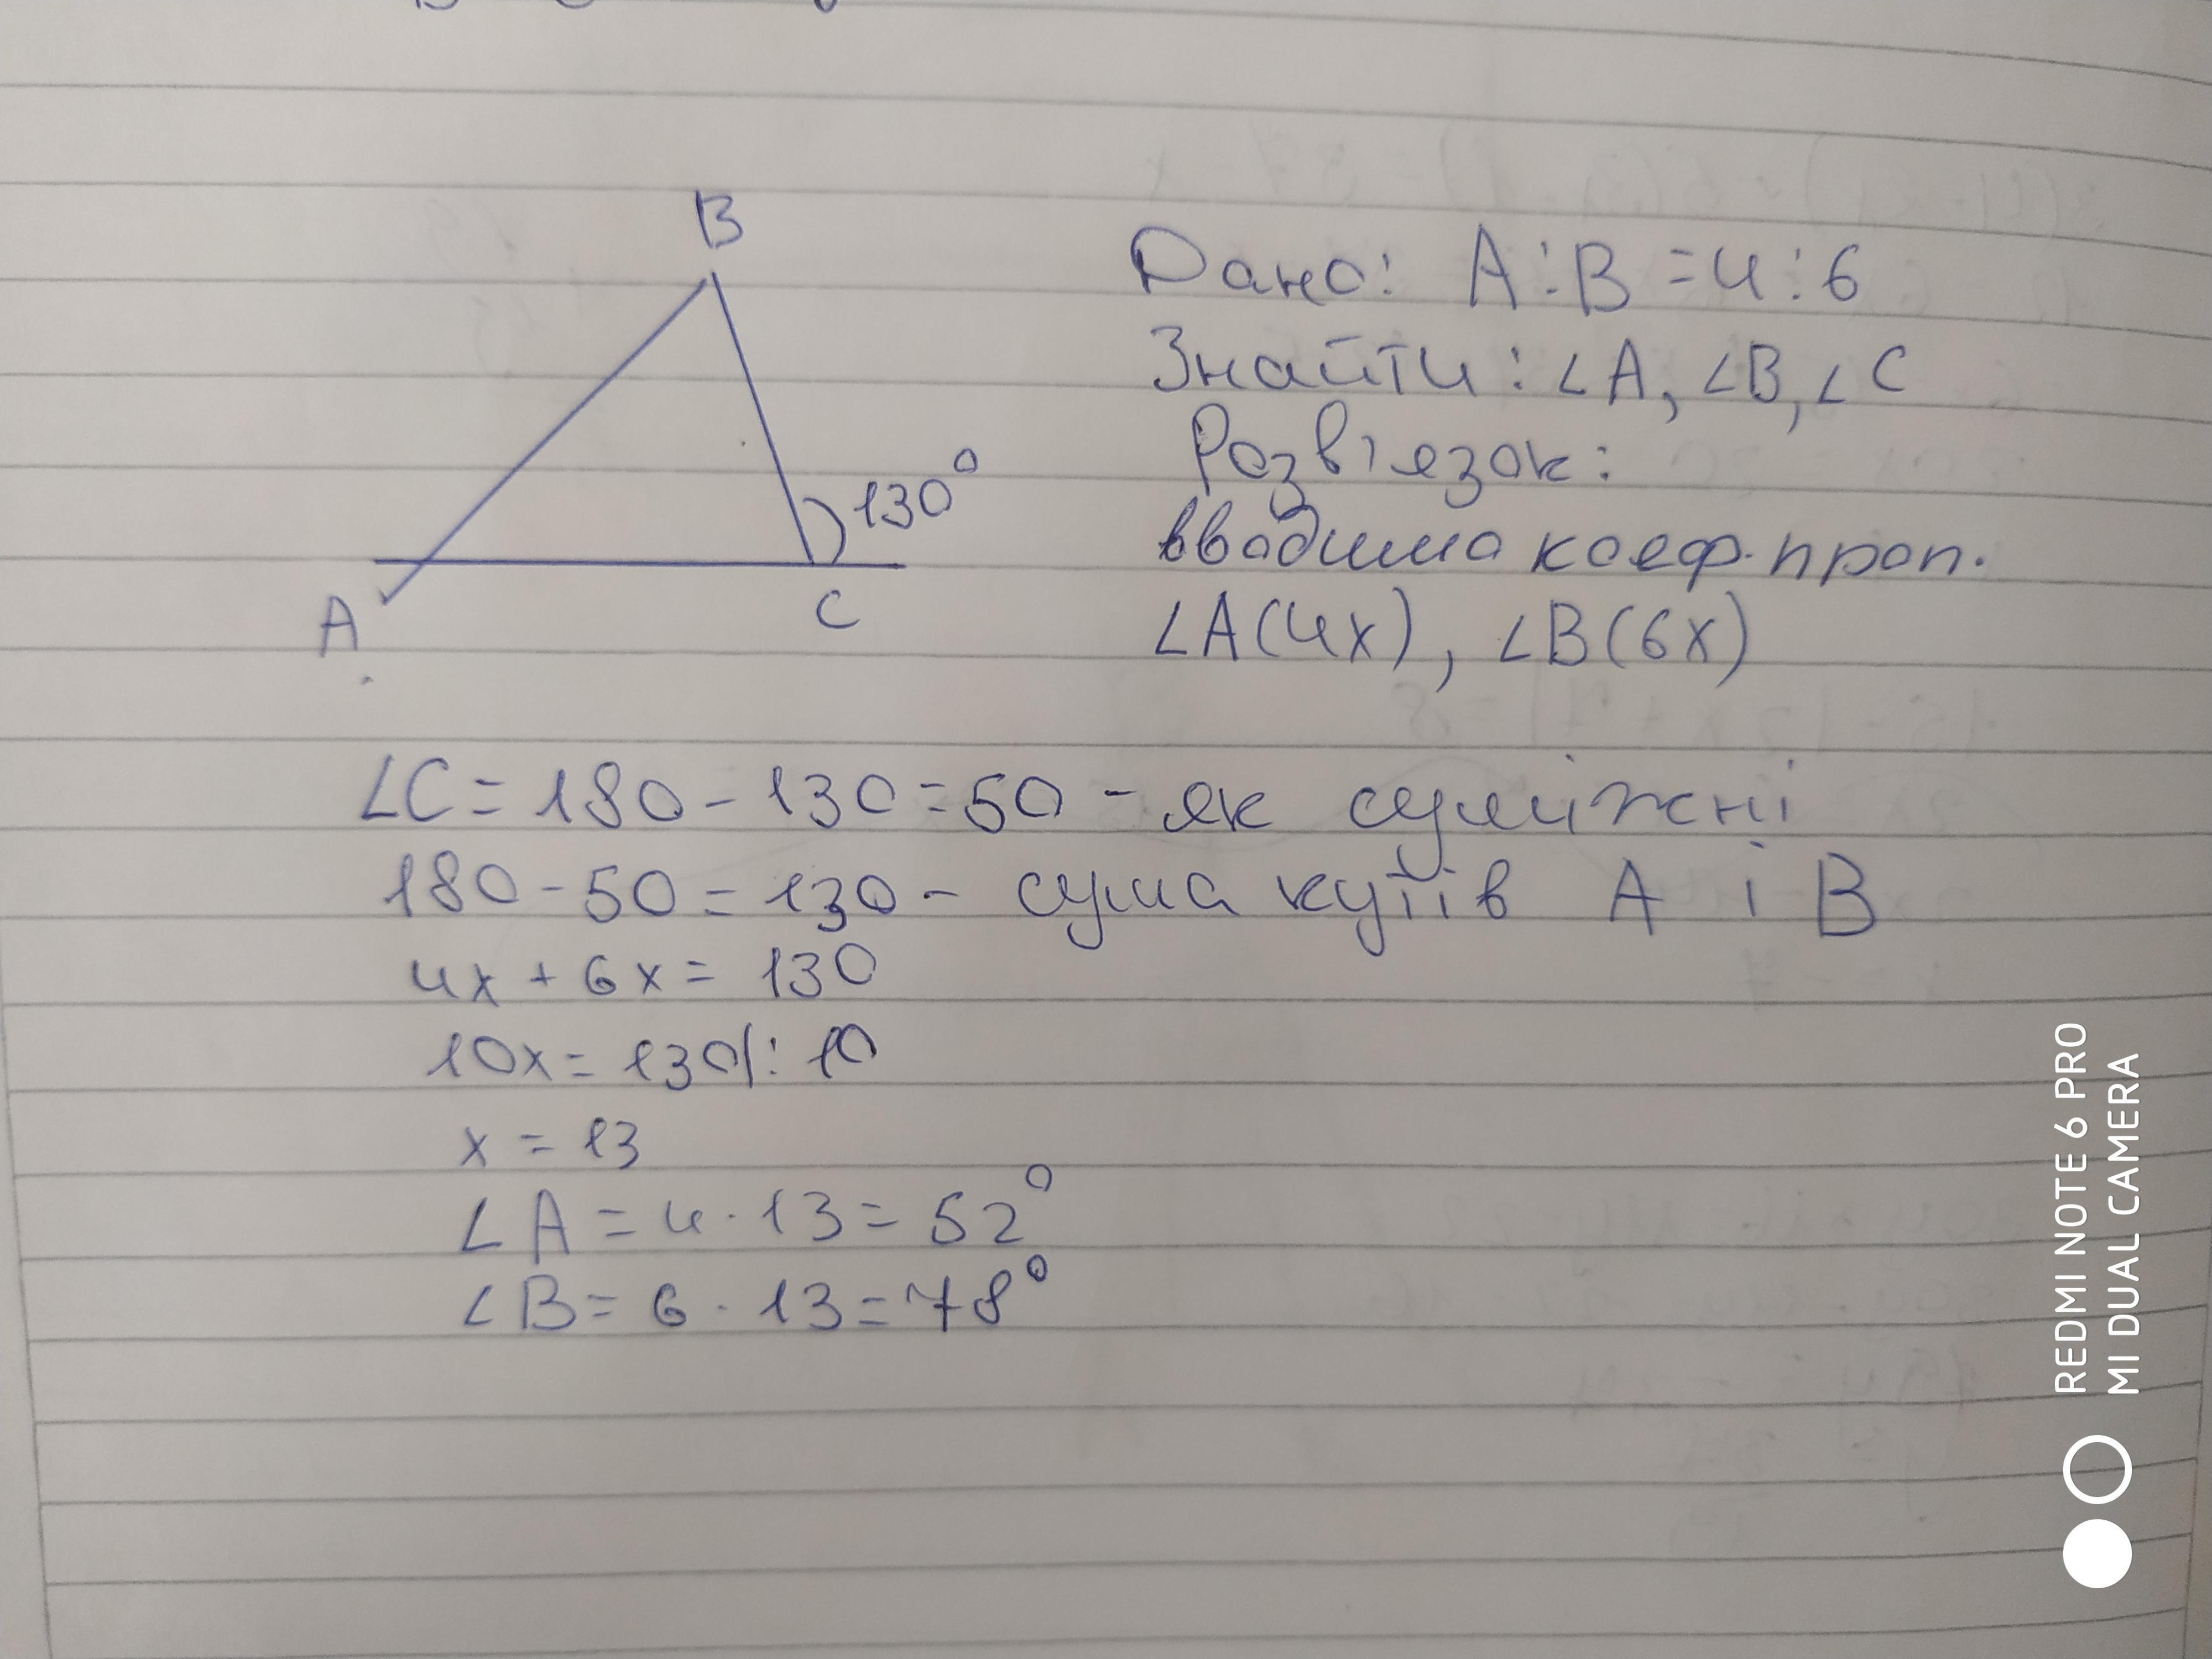 B
130°
A
C
Дано: A:B=4:6
Знайти: ∠A, ∠B, ∠C
Розв'язок:
вводимо коеф. проп.
∠A(4x), ∠B(6x)
∠C=180-130=50 - як суміжні
180-50=130- сума кутів A і B
4x+6x=130
10x=130|:10
x=13
∠A=4·13=52°
∠B=6·13=78°
REDMI NOTE 6 PRO
MI DUAL CAMERA